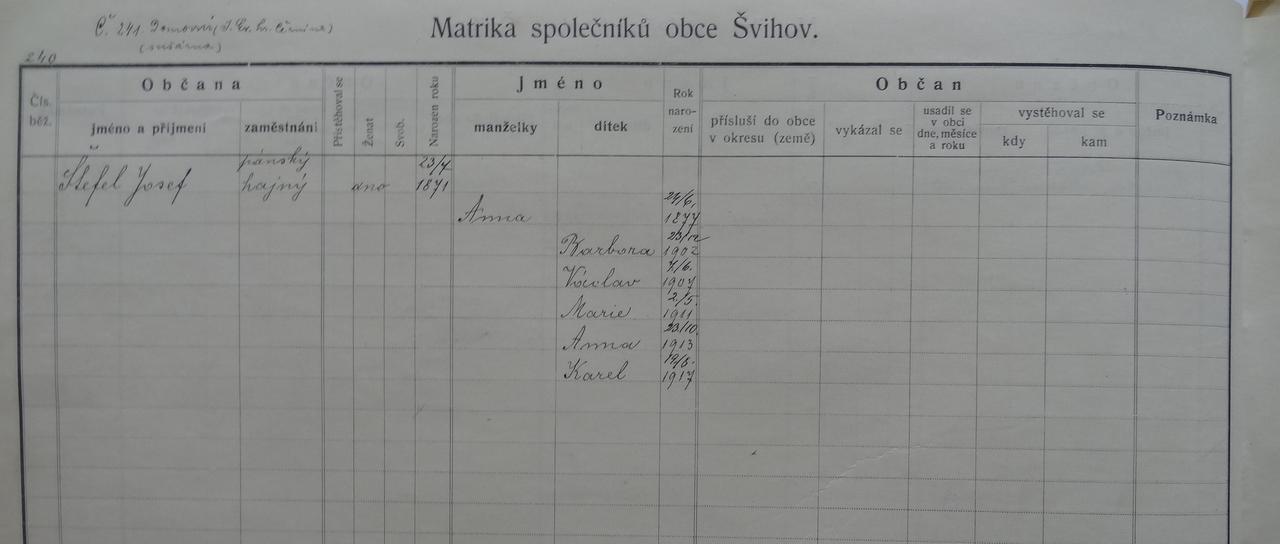 Č. 241. Domovní
Matrika společníků obce Švihov.
(sušárna)
240
Čís. běž.
Občana
Přistěhoval se
Ženat
Svob.
Narozen roku
Jméno
Rok naro- zení
Občan
Poznámka
jméno a příjmení
zaměstnání
manželky
dítek
přísluší do obce v okresu (země)
vykázal se
usadil se v obci dne, měsíce a roku
vystěhoval se
kdy
kam
pánský 23/7
Štefel Josef hajný ano 1871
24/6.
Anna 1877
23/12
Barbora 1902
7/6.
Václav 1907
2/5.
Marie 1911
23/10.
Anna 1913
Karel 1917